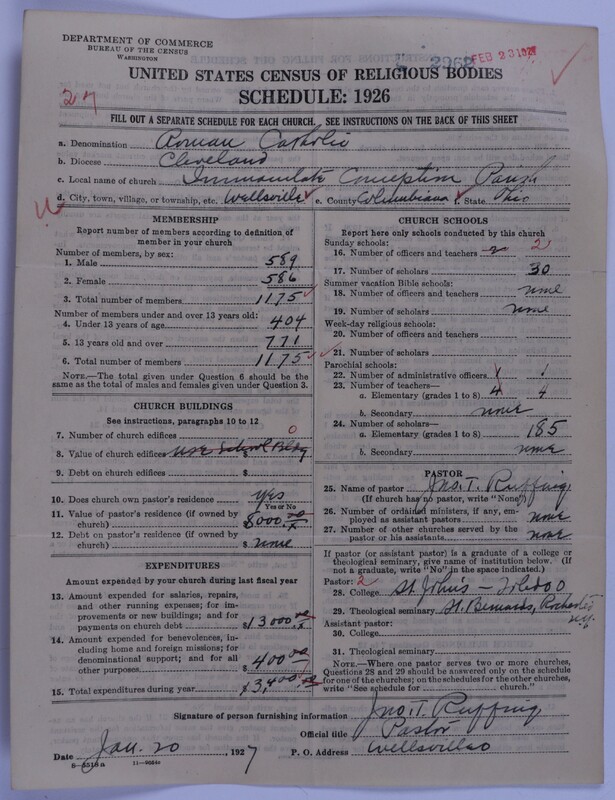 DEPARTMENT OF COMMERCE
BUREAU OF THE CENSUS
WASHINGTON
2962
FEB 23 1927
UNITED STATES CENSUS OF RELIGIOUS BODIES
27
SCHEDULE: 1926
FILL OUT A SEPARATE SCHEDULE FOR EACH CHURCH. SEE INSTRUCTIONS ON THE BACK OF THIS SHEET
a. Denomination Roman Catholic
b. Diocese Cleveland
c. Local name of church Immaculate Conception Parish
d. City, town, village, or township, etc. Wellsville e. County Columbiana f. State Ohio
MEMBERSHIP
Report number of members according to definition of member in your church
Number of members, by sex:
1. Male 589
2. Female 586
3. Total number of members 1175
Number of members under and over 13 years old:
4. Under 13 years of age 404
5. 13 years old and over 771
6. Total number of members 1175
NOTE.—The total given under Question 6 should be the
same as the total of males and females given under Question 3.
CHURCH BUILDINGS
See instructions, paragraphs 10 to 12
7. Number of church edifices 0
8. Value of church edifices use School Bldg
9. Debt on church edifices $
10. Does church own pastor's residence yes
Yes or No
11. Value of pastor's residence (if owned by
church) 8000
12. Debt on pastor's residence (if owned by
church) $ none
EXPENDITURES
Amount expended by your church during last fiscal year
13. Amount expended for salaries, repairs,
and other running expenses; for im-
provements or new buildings; and for
payments on church debt $13000
14. Amount expended for benevolences, in-
cluding home and foreign missions; for
denominational support; and for all
other purposes $ 400
15. Total expenditures during year $13,400
CHURCH SCHOOLS
Report here only schools conducted by this church
Sunday schools:
16. Number of officers and teachers 2 2
17. Number of scholars 30
Summer vacation Bible schools:
18. Number of officers and teachers none
19. Number of scholars none
Week-day religious schools:
20. Number of officers and teachers
21. Number of scholars
Parochial schools:
22. Number of administrative officers 1 1
23. Number of teachers—
a. Elementary (grades 1 to 8) 4 4
b. Secondary none
24. Number of scholars—
a. Elementary (grades 1 to 8) 185
b. Secondary none
PASTOR
25. Name of pastor Jno. T. Ruffing
(If church has no pastor, write "None")
26. Number of ordained ministers, if any, em-
ployed as assistant pastors none
27. Number of other churches served by the
pastor or his assistants none
If pastor (or assistant pastor) is a graduate of a college or
theological seminary, give name of institution below. (If
not a graduate, write "No" in the space indicated.)
Pastor: 2
28. College St. John's — Toledo O
29. Theological seminary St. Bernards, Rochester
N.Y.
Assistant pastor:
30. College
31. Theological seminary
NOTE.—Where one pastor serves two or more churches,
Questions 28 and 29 should be answered only on the schedule
for one of the churches; on the schedules for the other churches,
write "See schedule for church."
Signature of person furnishing information Jno. T. Ruffing
Official title Pastor
Date Jan. 20 1927 P. O. Address Wellsville O
8—5518a